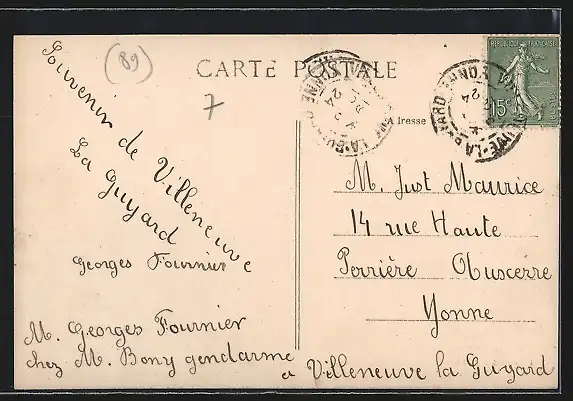 (89)
CARTE POSTALE
7
RÉPUBLIQUE FRANÇAISE
15c
LA-GUYARD YONNE
24
Souvenir de Villeneuve
La Guyard
Georges Fournier
M. Georges Fournier
chez M. Bony gendarme
a Villeneuve la Guyard
Adresse
M. Just Maurice
14 rue Haute
Perrière Auxerre
Yonne